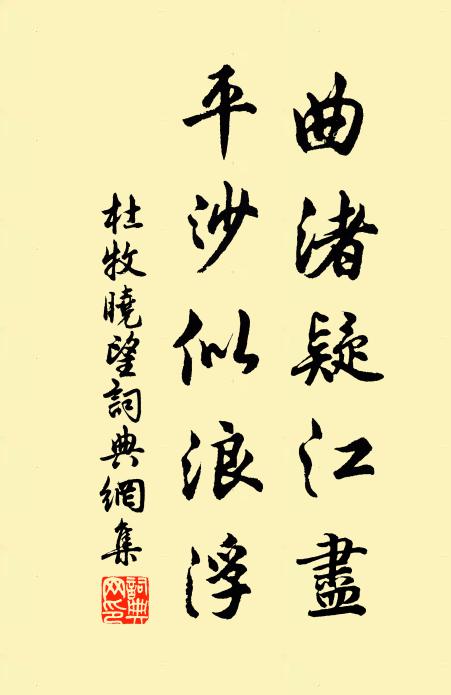 曲渚疑江盡
平沙似浪浮
杜牧曉望詞典網集
詞典網印